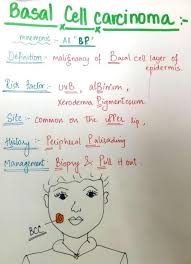 Basal Cell carcinoma :-
mnemonic :- All "BP"
Definition :- malignancy of Basal cell layer of
epidermis.
Risk factor :- UVB, albinism,
Xeroderma Pigmentosum.
Site :- Common on the upper lip,
History :- Peripheral Palisading
Management :- Biopsy & Pull it out.
BCC